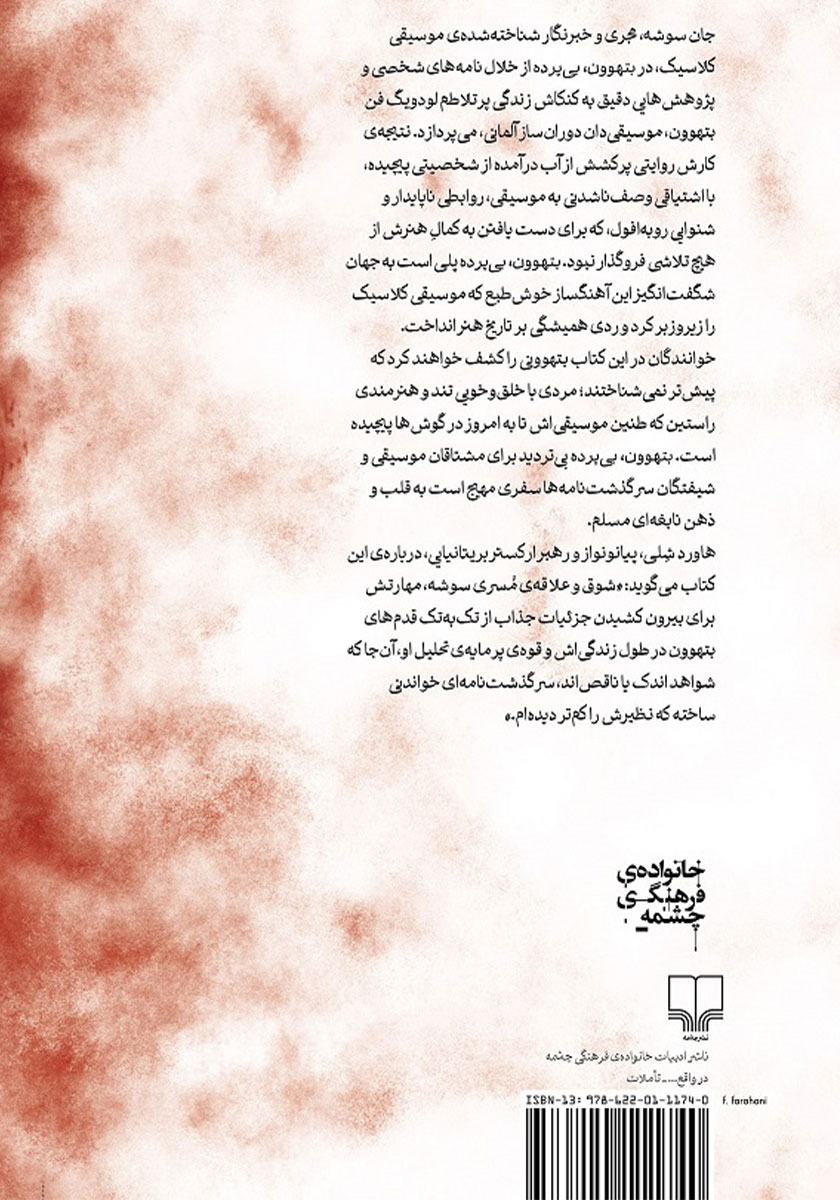 جان سوشه، مجری و خبرنگار شناخته‌شده‌ی موسیقی
کلاسیک، در بتهوون، بی‌پرده از خلال نامه‌های شخصی و
پژوهش‌هایی دقیق به کنکاش زندگی پرتلاطم لودویگ فن
بتهوون، موسیقی‌دان دوران‌ساز آلمانی، می‌پردازد. نتیجه‌ی
کارش روایتی پرکشش از آب درآمده از شخصیتی پیچیده،
با اشتیاقی وصف‌ناشدنی به موسیقی، روابطی ناپایدار و
شنوایی روبه‌افول، که برای دست یافتن به کمالِ هنرش از
هیچ تلاشی فروگذار نبود. بتهوون، بی‌پرده پلی است به جهان
شگفت‌انگیز این آهنگساز خوش‌طبع که موسیقی کلاسیک
را زیروزبر کرد و ردی همیشگی بر تاریخ هنر انداخت.
خوانندگان در این کتاب بتهوونی را کشف خواهند کرد که
پیش‌تر نمی‌شناختند؛ مردی با خلق‌وخویی تند و هنرمندی
راستین که طنین موسیقی‌اش تا به امروز در گوش‌ها پیچیده
است. بتهوون، بی‌پرده بی‌تردید برای مشتاقان موسیقی و
شیفتگان سرگذشت‌نامه‌ها سفری مهیج است به قلب و
ذهن نابغه‌ای مسلم.
هاورد شِلی، پیانونواز و رهبر ارکستر بریتانیایی، درباره‌ی این
کتاب می‌گوید: «شوق و علاقه‌ی مُسری سوشه، مهارتش
برای بیرون کشیدن جزئیات جذاب از تک‌به‌تک قدم‌های
بتهوون در طول زندگی‌اش و قوه‌ی پرمایه‌ی تحلیل او، آن‌جا که
شواهد اندک یا ناقص‌اند، سرگذشت‌نامه‌ای خواندنی
ساخته که نظیرش را کم‌تر دیده‌ام.»
خانواده‌ی
فرهنگی
چشمه
نشرچشمه
ناشر ادبیات خانواده‌ی فرهنگی چشمه
در واقع.... ـ تأملات
ISBN-13: 978-622-01-1174-0
f. farahani